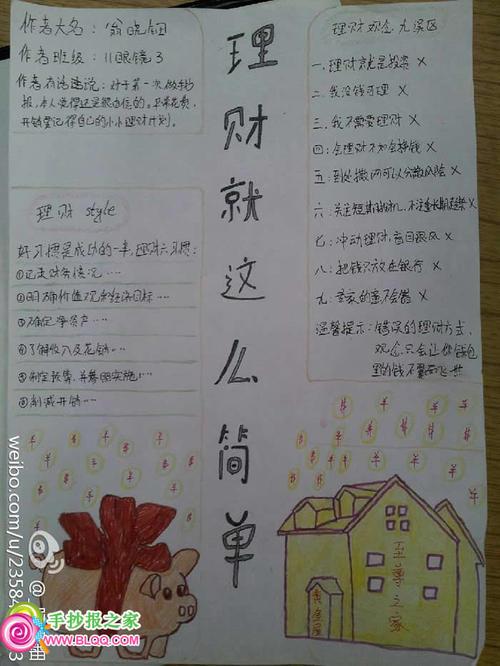 作者大名：翁晓钿
作者班级：11眼镜3
作者有话说：对于第一次做手抄
报，本人觉得还是很自信的。平常花费，
开销要记得自己的小小理财计划。
理财 style
好习惯是成功的一半，理财六习惯：
①记录财务情况……
②明确价值观和经济目标……
③确定净资产……
④了解收入及花销……
⑤制定预算，并参照实施……
⑥削减开销……
理财就这么简单
理财观念九误区
一、理财就是投资 X
二、我没钱可理 X
三、我不需要理财 X
四：会理财不如会挣钱 X
五：到处撒网可以分散风险 X
六：关注短期
七：冲动理财，盲目跟风 X
八：把钱只放在银行 X
九：专家的意
温馨提示：错误的理财方式、
观念，只会让你钱包
里的钱不翼而飞
至尊之家
黄金屋
weibo.com/u/23584
手抄报之家
WWW.BLQQ.COM